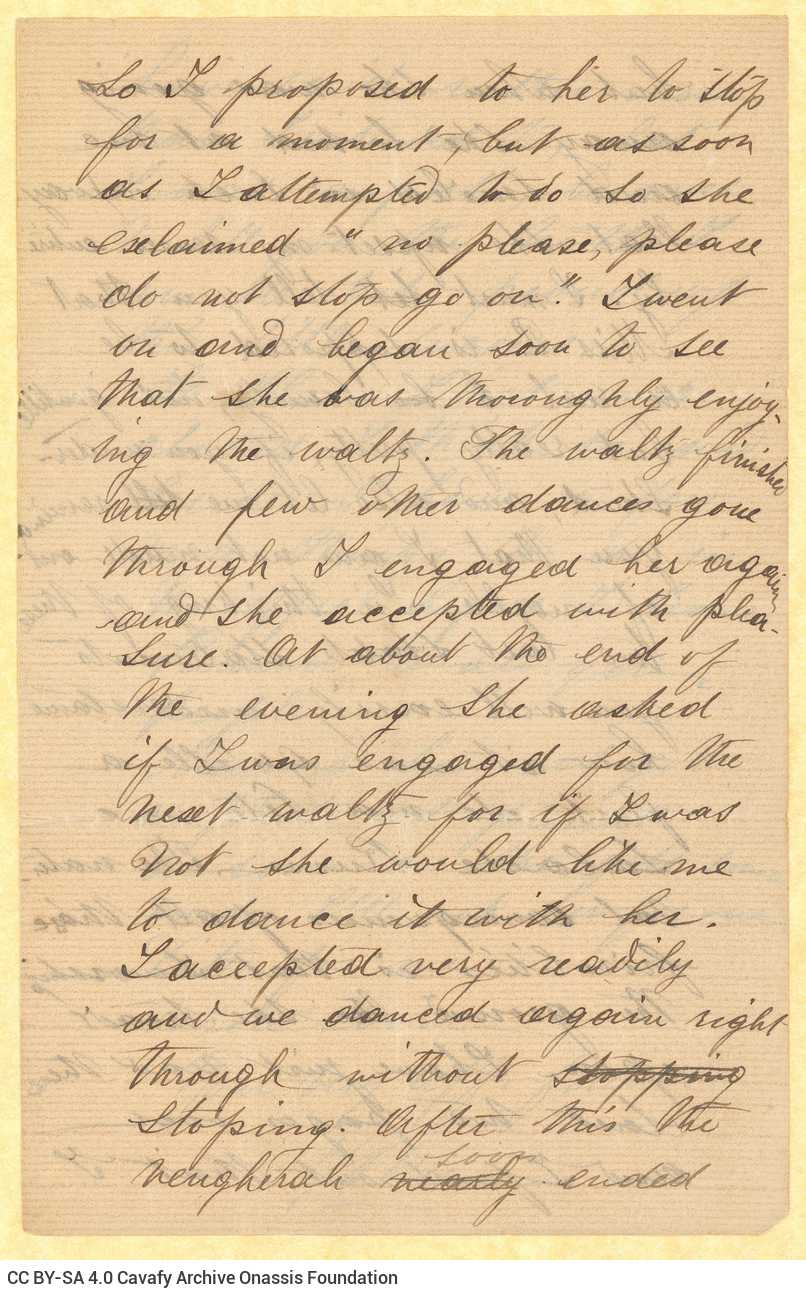 So I proposed to her to stop
for a moment, but as soon
as I attempted to do so she
exclaimed "no please, please
do not stop go on". I went
on and began soon to see
that she was thoroughly enjoy-
ing the waltz. The waltz finished
and few other dances gone
through I engaged her again
and she accepted with plea-
sure. At about the end of
the evening she asked
if I was engaged for the
next waltz for if I was
not, she would like me
to dance it with her.
I accepted very readily
and we danced again right
through without stopping
stoping. After this the
soon
nearly ended
CC BY-SA 4.0 Cavafy Archive Onassis Foundation